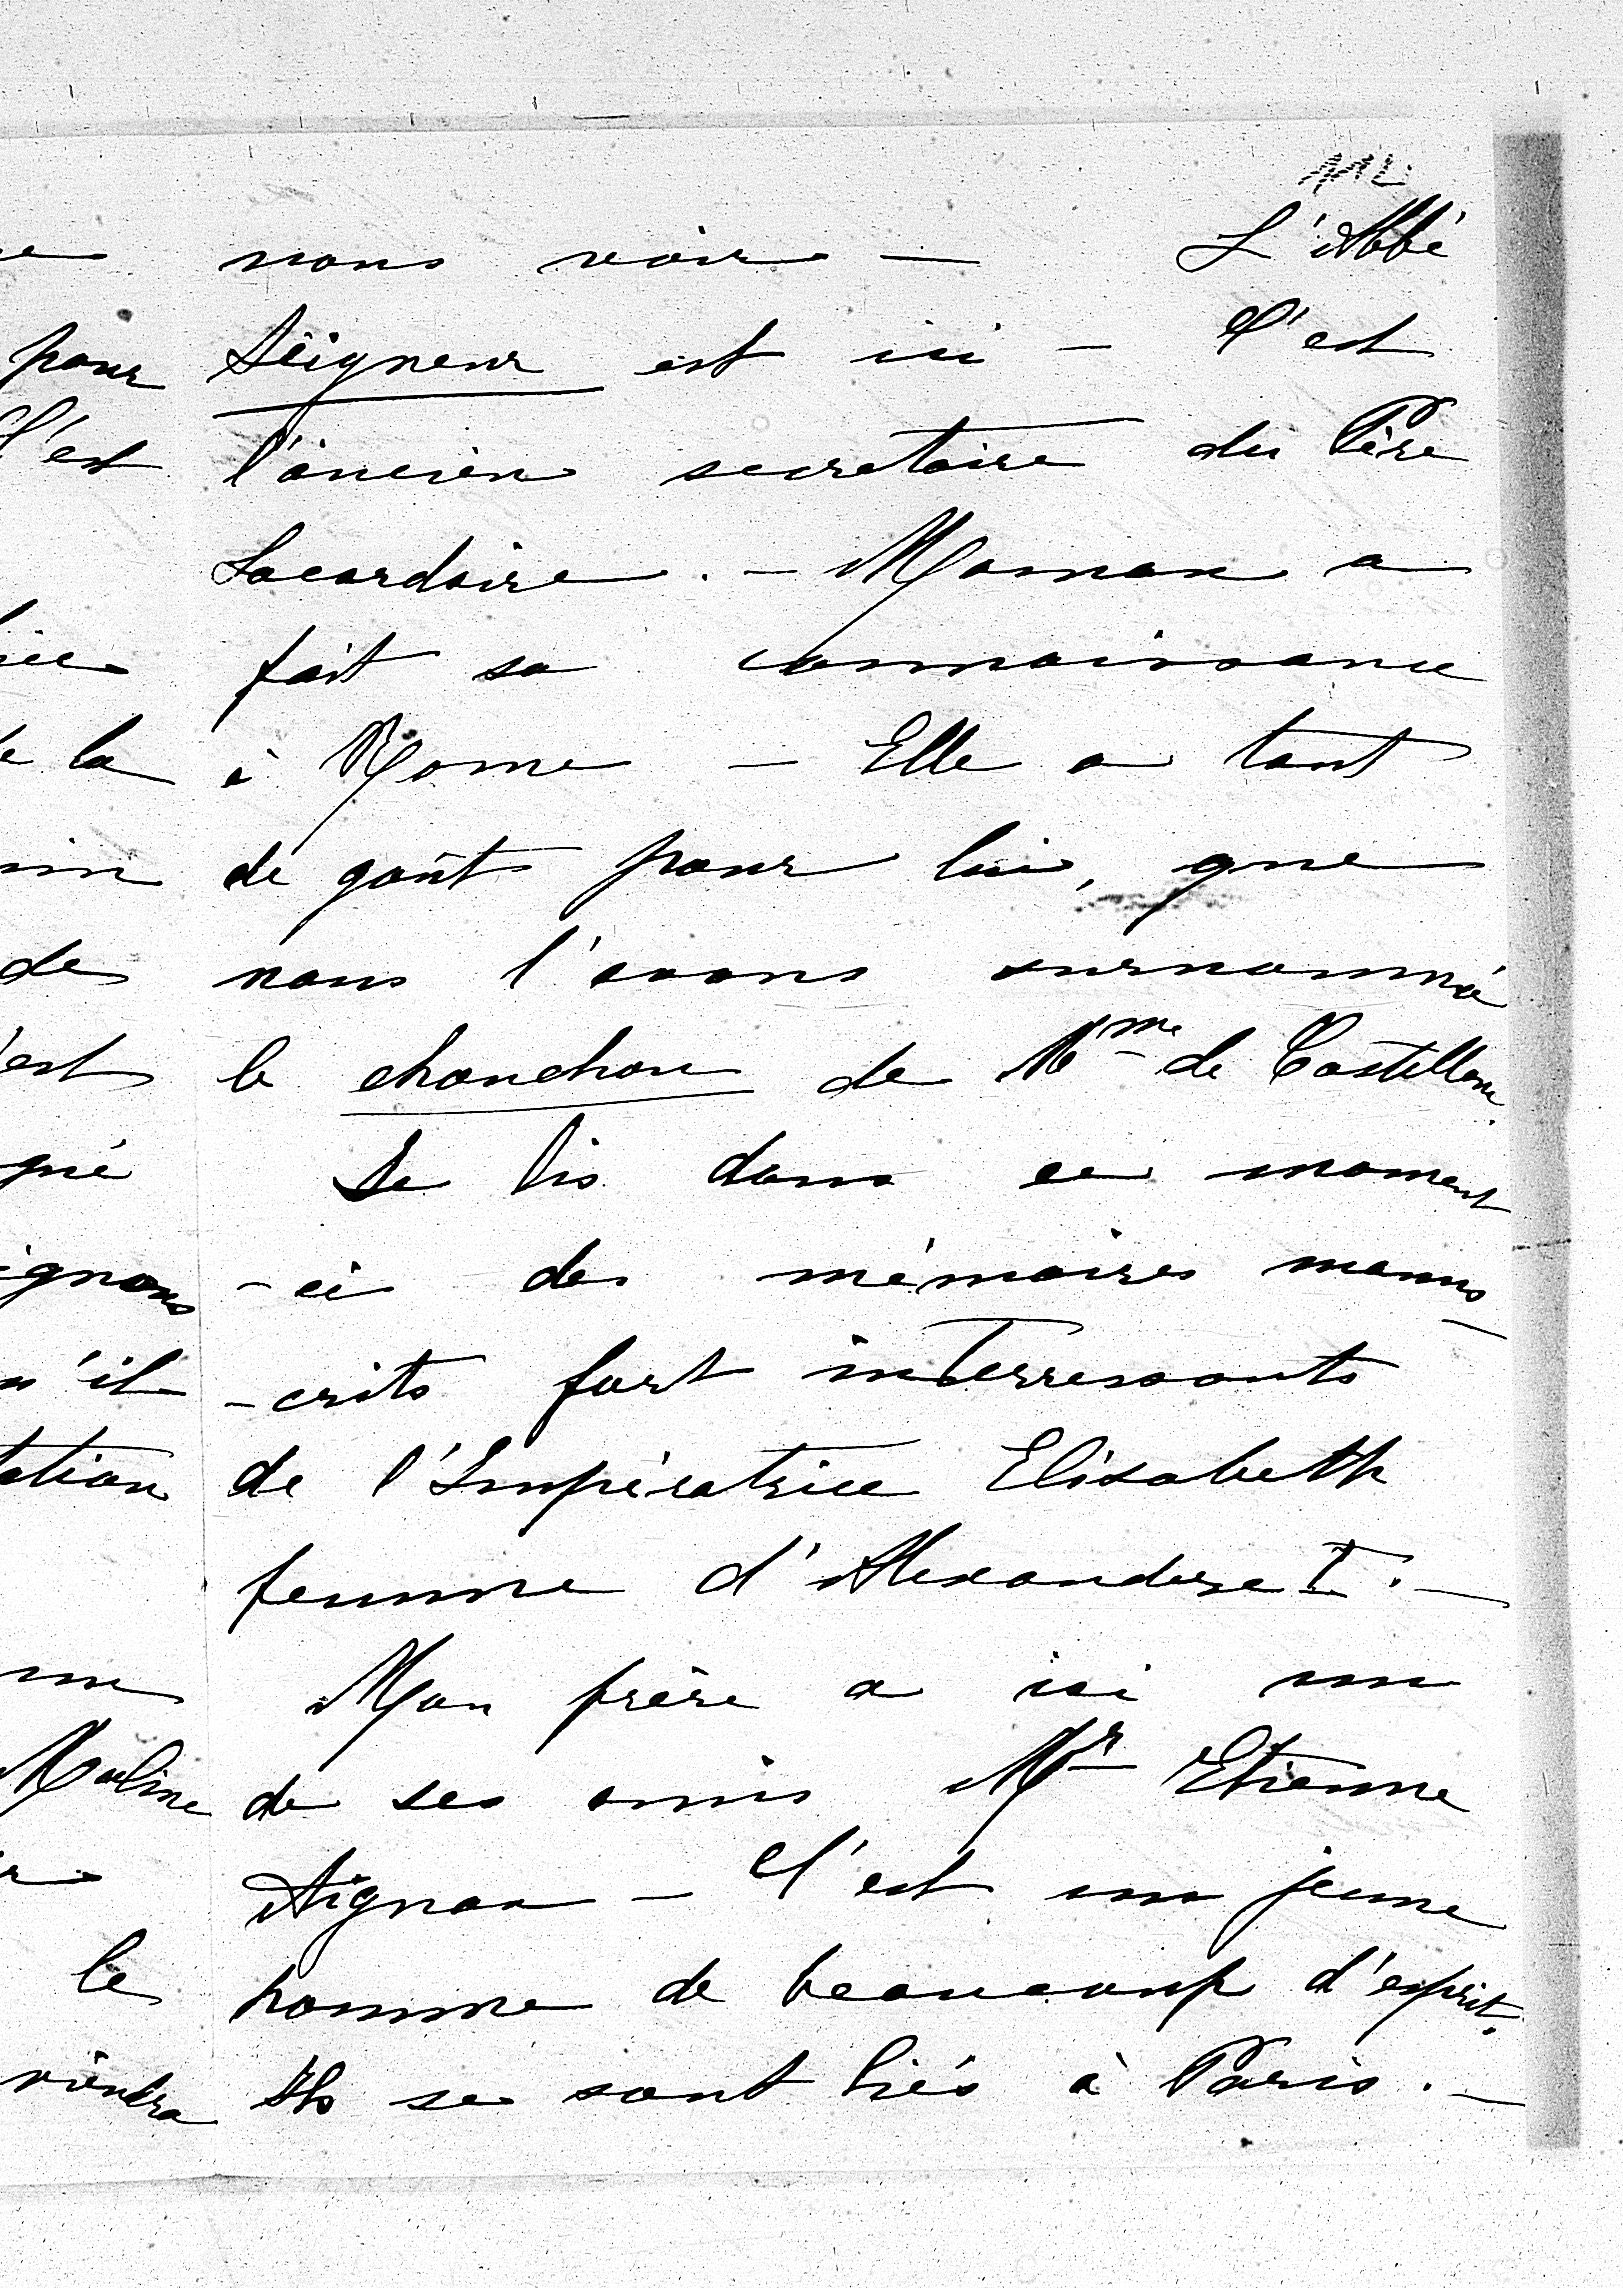 nous voir — L'Abbé
Seigneur est ici — C'est
l'ancien secretaire du Père
Lacordaire. — Maman a
fait sa connaissance
à Rome — Elle a tant
de goût pour lui, que
nous l'avons surnommé
le chouchou de Mme de Castellane.
Je lis dans ce moment
-ci des mémoires manus-
-crits fort interressants
de l'Impératrice Elisabeth
femme d'Alexandre I. —
Mon frère a ici un
de ses amis Mr Etienne
Aignan — C'est un jeune
homme de beaucoup d'esprit.
Ils se sont liés à Paris. —
pour
C'est
la
de
est
qu'il
un
le
viendra